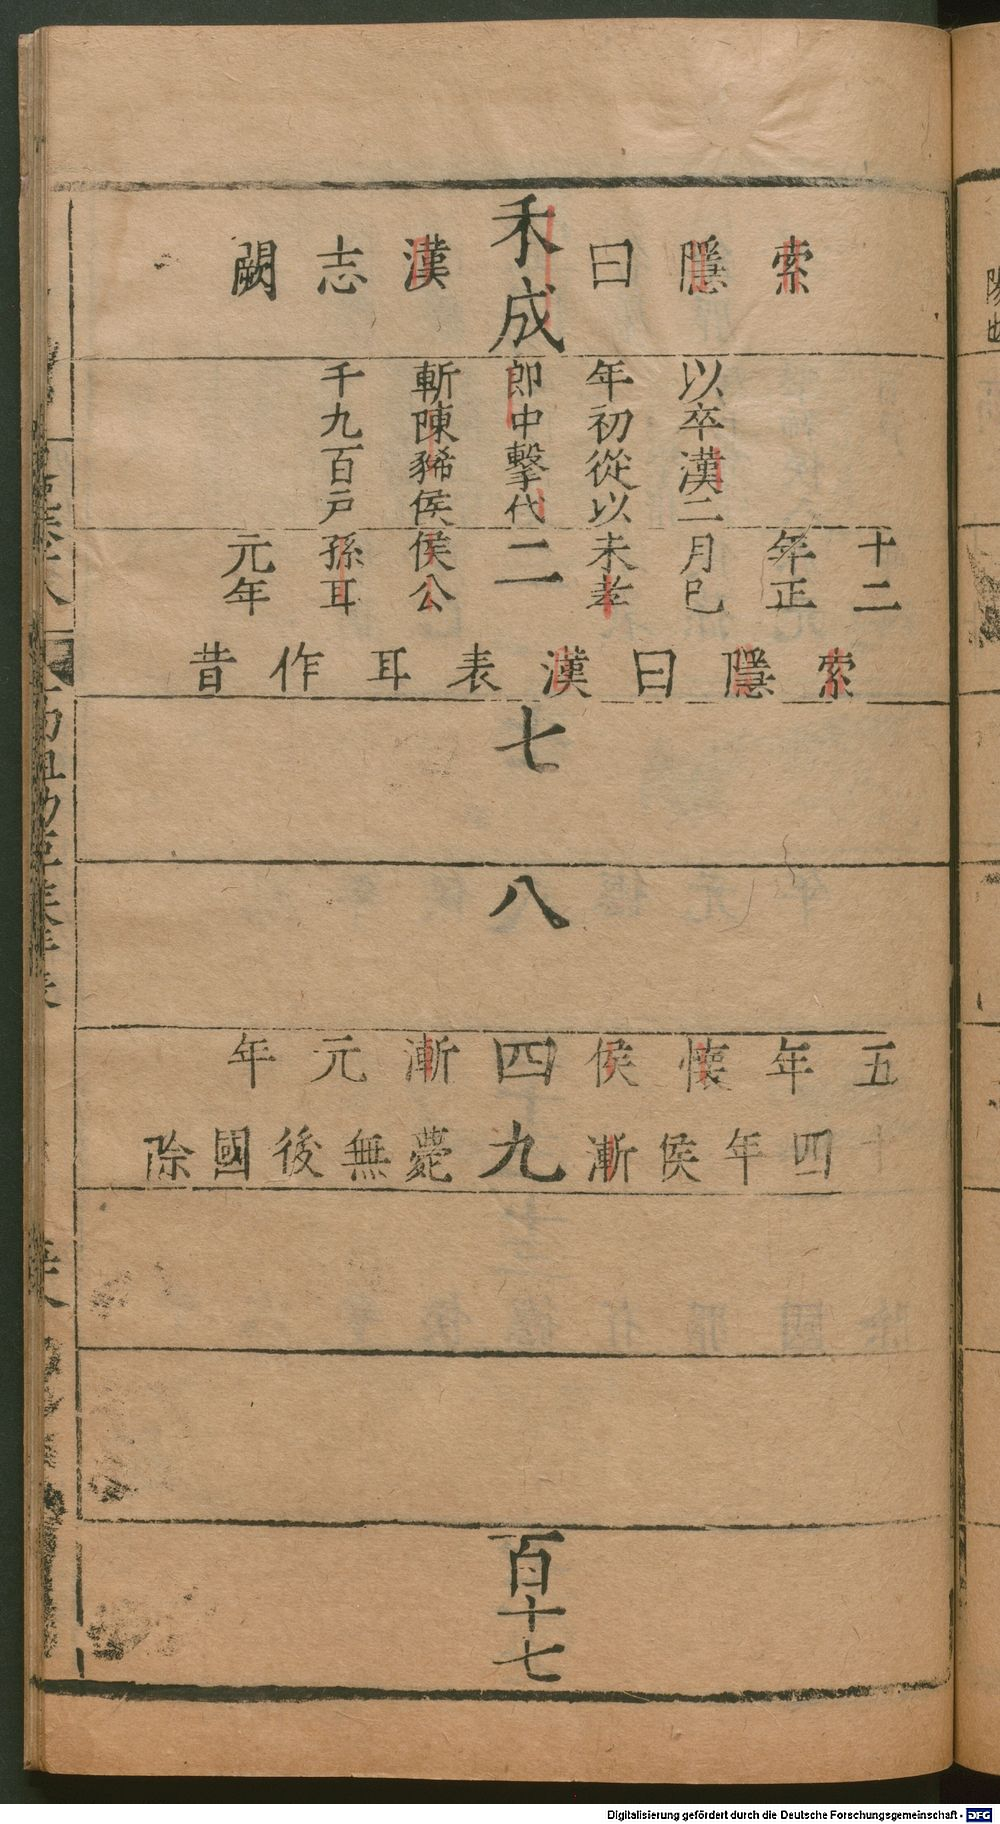 禾成
索隱曰漢志闕
以卒漢二
年初從以
郎中擊代
斬陳豨侯
千九百戶
十二
年正
月巳
未孝
二
侯公
孫耳
元年
索隱曰漢表耳作昔
七
八
五年懷侯四漸元年
四年侯漸九薨無後國除
百十七
Digitalisierung gefördert durch die Deutsche Forschungsgemeinschaft - DFG